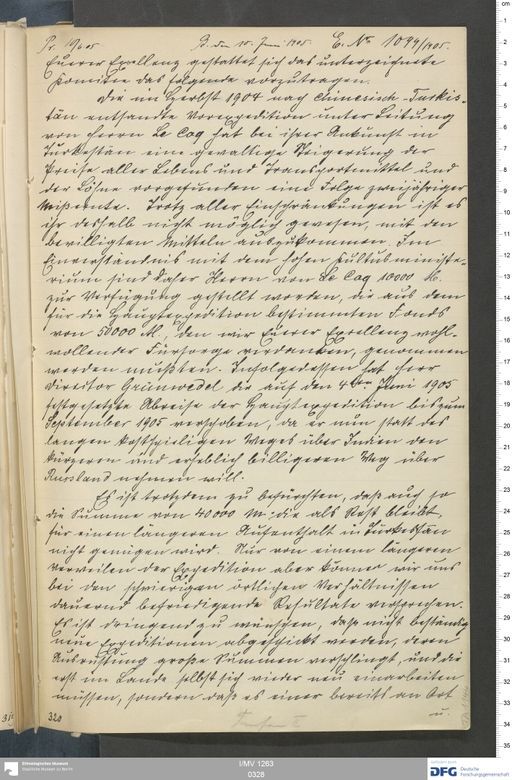 Pr. 10/6 05 B. den 10. Juni 1905. E. No 1094/1905.
Euerer Exzellenz gestattet sich das unterzeichnete
Komitee das Folgende vorzutragen.
Die im Herbst 1904 nach Chinesisch-Turkis-
tân entsandte Vorexpedition unter Leitung
von Herrn Le Coq hat bei ihrer Ankunft in
Turkestân eine gewaltige Steigerung der
Preise aller Lebens und Transportmittel und
der Löhne vorgefunden eine Folge zweijähriger
Mißernte. Trotz aller Einschränkungen ist es
ihr deshalb nicht möglich gewesen, mit den
bewilligten Mitteln auszukommen. Im
Einverständnis mit dem hohen Kultusministe-
rium sind daher Herrn von Le Coq 10000 M.
zur Verfügung gestellt worden, die aus dem
für die Hauptexpedition bestimmten Fonds
von 50000 M, den wir Euerer Exzellenz wohl-
wollender Fürsorge verdanken, genommen
werden mußten. Infolgedessen hat Herr
Director Grünwedel die auf den 4ten Juni 1905
festgesetzte Abreise der Hauptexpedition bis zum
September 1905 verschoben, da er nun statt des
langen kostspieligen Weges über Indien den
kürzeren und erheblich billigeren Weg über
Russland nehmen will.
Es ist trotzdem zu befürchten, daß auch so
die Summe von 40000 M. die als Rest bleibt,
für einen längeren Aufenthalt in Turkestân
nicht genügen wird. Nur von einem längeren
Verweilen der Expedition aber können wir uns
bei den schwierigen örtlichen Verhältnissen
dauernd befriedigende Resultate versprechen.
Es ist dringend zu wünschen, daß nicht beständig
neue Expeditionen abgeschickt werden, deren
Ausrüstung große Summen verschlingt, und die
erst im Lande selbst sich wieder neu einarbeiten
müssen, sondern daß es einer bereits an Ort
u.
320
Ethnologisches Museum
Staatliche Museen zu Berlin
I/MV 1263
0328
gefördert durch
DFG Deutsche
Forschungsgemeinschaft